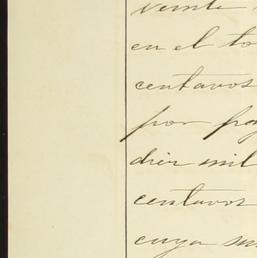 veinte
en el to
centavos
por pag
diez mil
centavos
cuya su